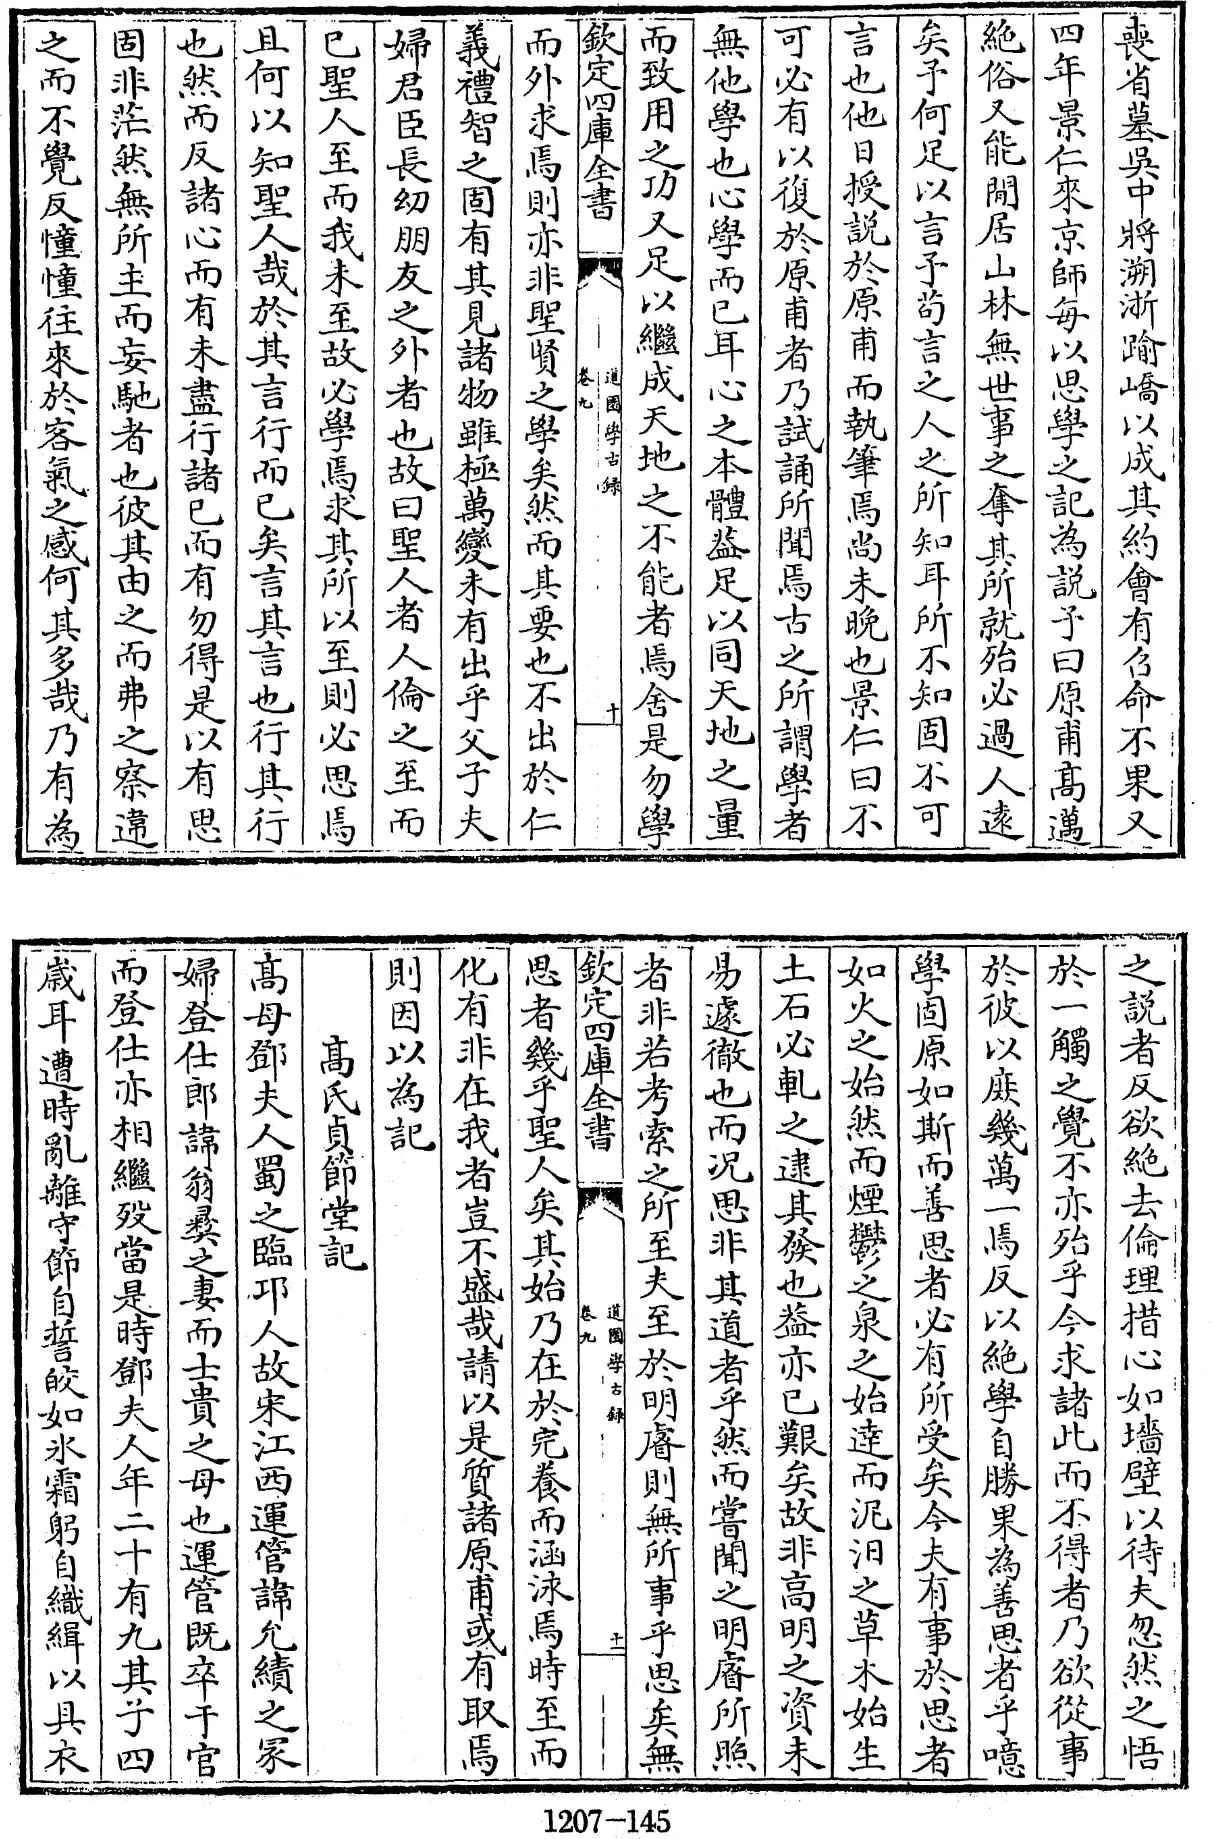 喪省墓吳中將溯浙踰嶠以成其約會有召命不果又
四年景仁來京師每以思學之記為説予曰原甫髙邁
絶俗又能閒居山林無世事之奪其所就殆必過人逺
矣予何足以言予苟言之人之所知耳所不知固不可
言也他日授説於原甫而執筆焉尚未晚也景仁曰不
可必有以復於原甫者乃試誦所聞焉古之所謂學者
無他學也心學而已耳心之本體葢足以同天地之量
而致用之功又足以繼成天地之不能者焉舍是勿學
欽定四庫全書
道園學古録
卷九
十
而外求焉則亦非聖賢之學矣然而其要也不出於仁
義禮智之固有其見諸物雖極萬變未有出乎父子夫
婦君臣長幼朋友之外者也故曰聖人者人倫之至而
已聖人至而我未至故必學焉求其所以至則必思焉
且何以知聖人哉於其言行而已矣言其言也行其行
也然而反諸心而有未盡行諸已而有勿得是以有思
固非茫然無所主而妄馳者也彼其由之而弗之察違
之而不覺反憧憧往來於客氣之感何其多哉乃有為
之説者反欲絶去倫理措心如墻壁以待夫忽然之悟
於一觸之覺不亦殆乎今求諸此而不得者乃欲從事
於彼以庻幾萬一焉反以絶學自勝果為善思者乎噫
學固原如斯而善思者必有所受矣今夫有事於思者
如火之始然而煙鬱之泉之始達而泥汨之草木始生
土石必軋之逮其發也葢亦已艱矣故非高明之資未
易遽徹也而況思非其道者乎然而嘗聞之明睿所照
者非若考索之所至夫至於明睿則無所事乎思矣無
欽定四庫全書
道園學古録
卷九
十一
思者幾乎聖人矣其始乃在於完養而涵泳焉時至而
化有非在我者豈不盛哉請以是質諸原甫或有取焉
則因以為記
髙氏貞節堂記
髙母鄧夫人蜀之臨卭人故宋江西運管諱允績之冢
婦登仕郎諱翁彛之妻而士貴之母也運管既卒于官
而登仕亦相繼殁當是時鄧夫人年二十有九其子四
歳耳遭時亂離守節自誓皎如氷霜躬自織緝以具衣
1207-145